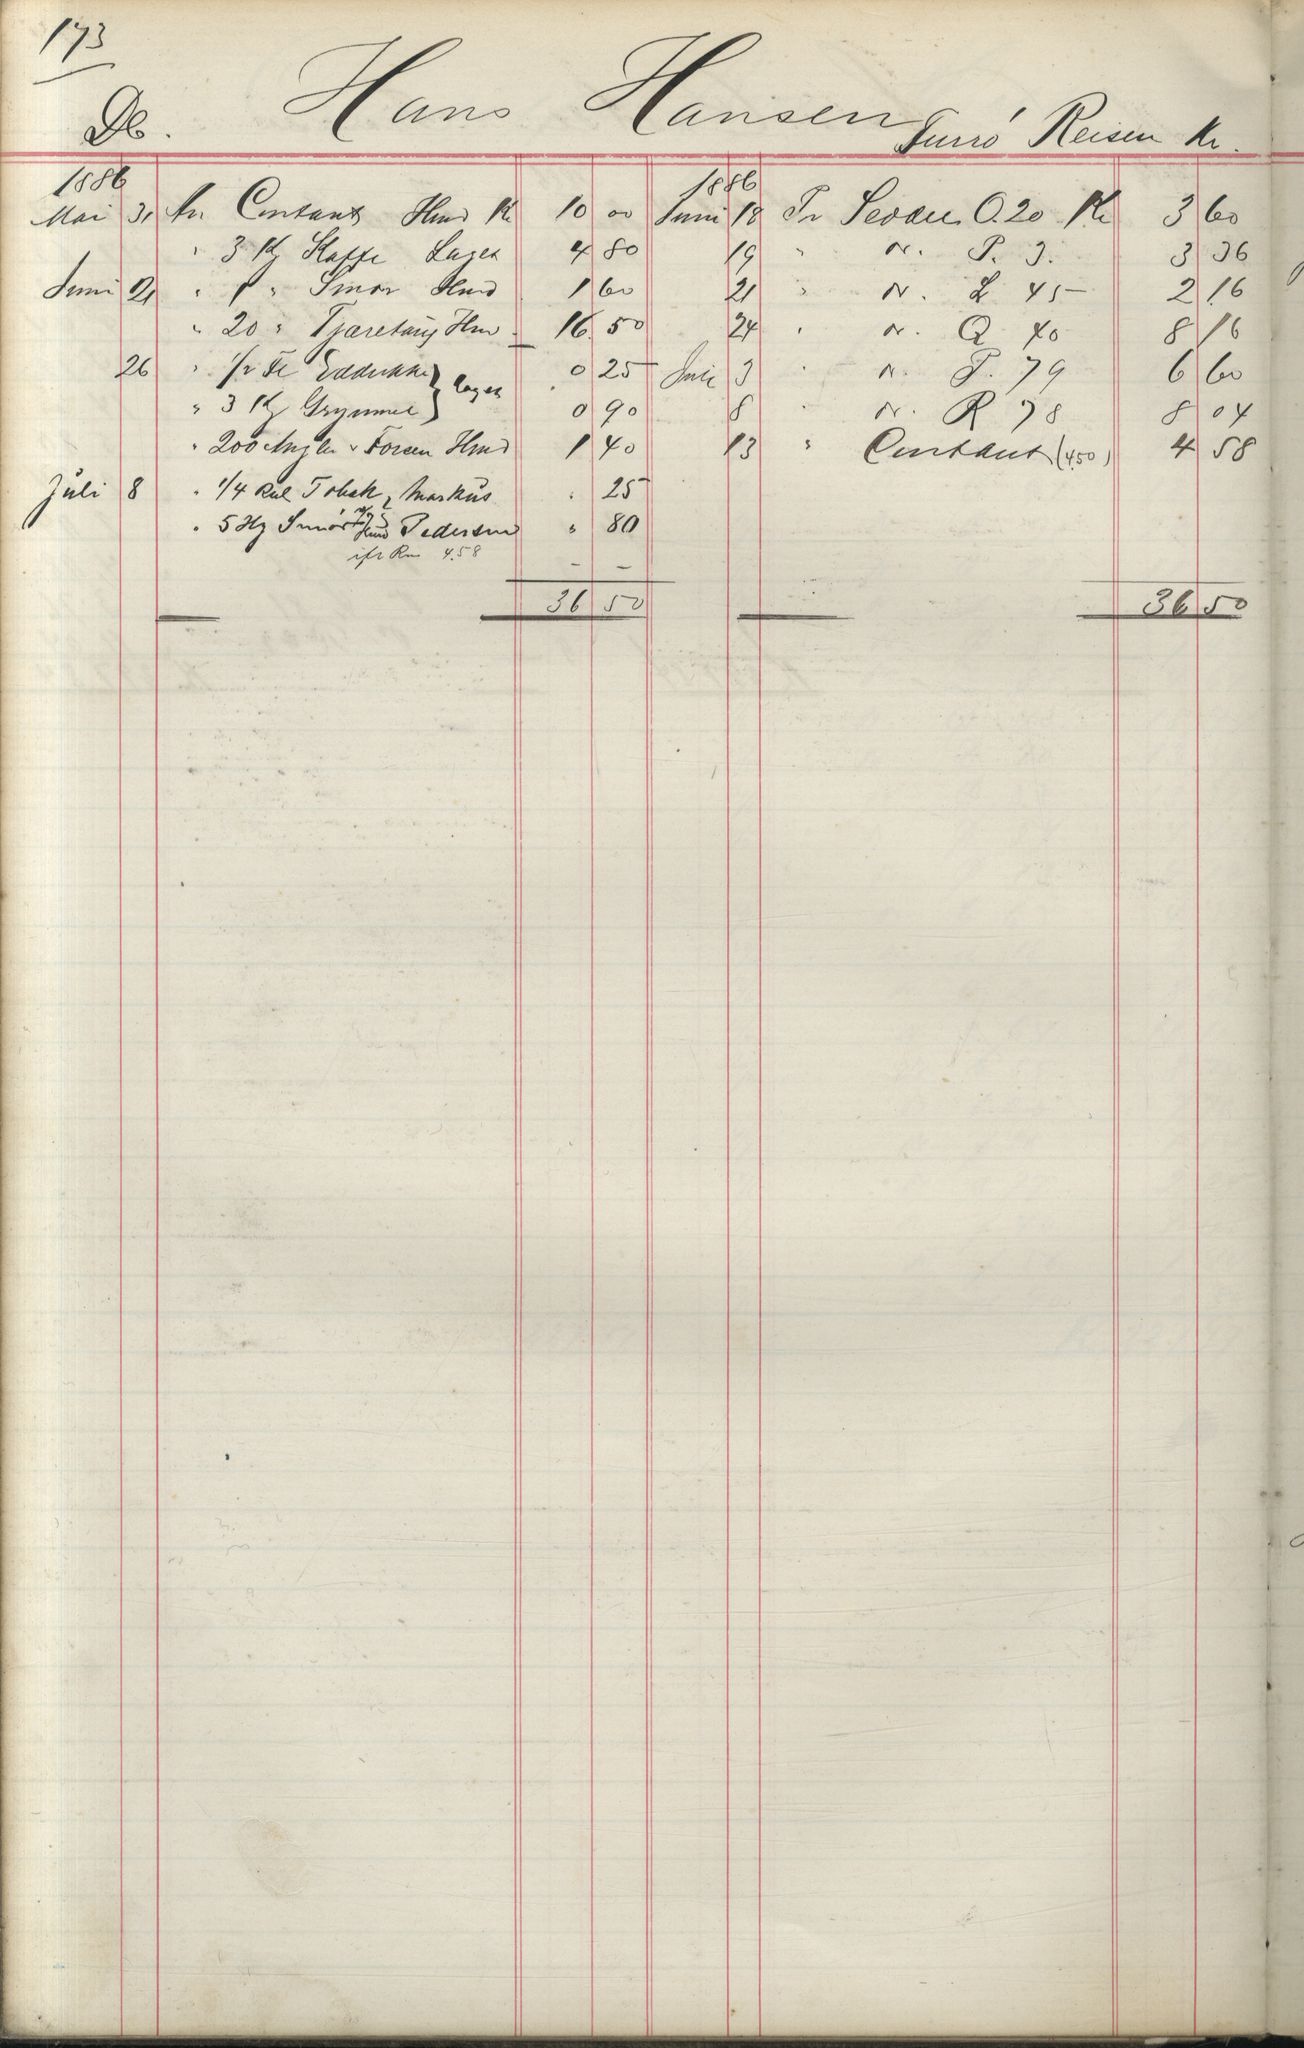 173
Db. Hans Hansen Turrö Reisen Kr.
1886
Mai 31 An Contant Hmd Kr 10 00
" 3 Kg Kaffe Lager 4 80
Juni 21 " 1 " Smør Hmd 1 60
" 20 " Tjæretaug Hmd 16 50
26 " 1/2 Fl Eddikke } Lager 0 25
" 3 Kg Grynmel } 0 90
" 200 Angler v Forsen Hmd 1 40
Juli 8 " 1/4 Rul Tobak, Markus " 25
" 5 Hg Smör Hmd Pedersen " 80
4.58
36 50
1886
Juni 18 Pr Seddel O. 20 Kr 3 60
19 " N. P. 3. 3 36
21 " N. L 45 2 16
24 " N. Q 40 8 16
Juli 3 " N. P. 79 6 60
8 " N. R 78 8 04
13 " Contant (4.50) 4 58
36 50